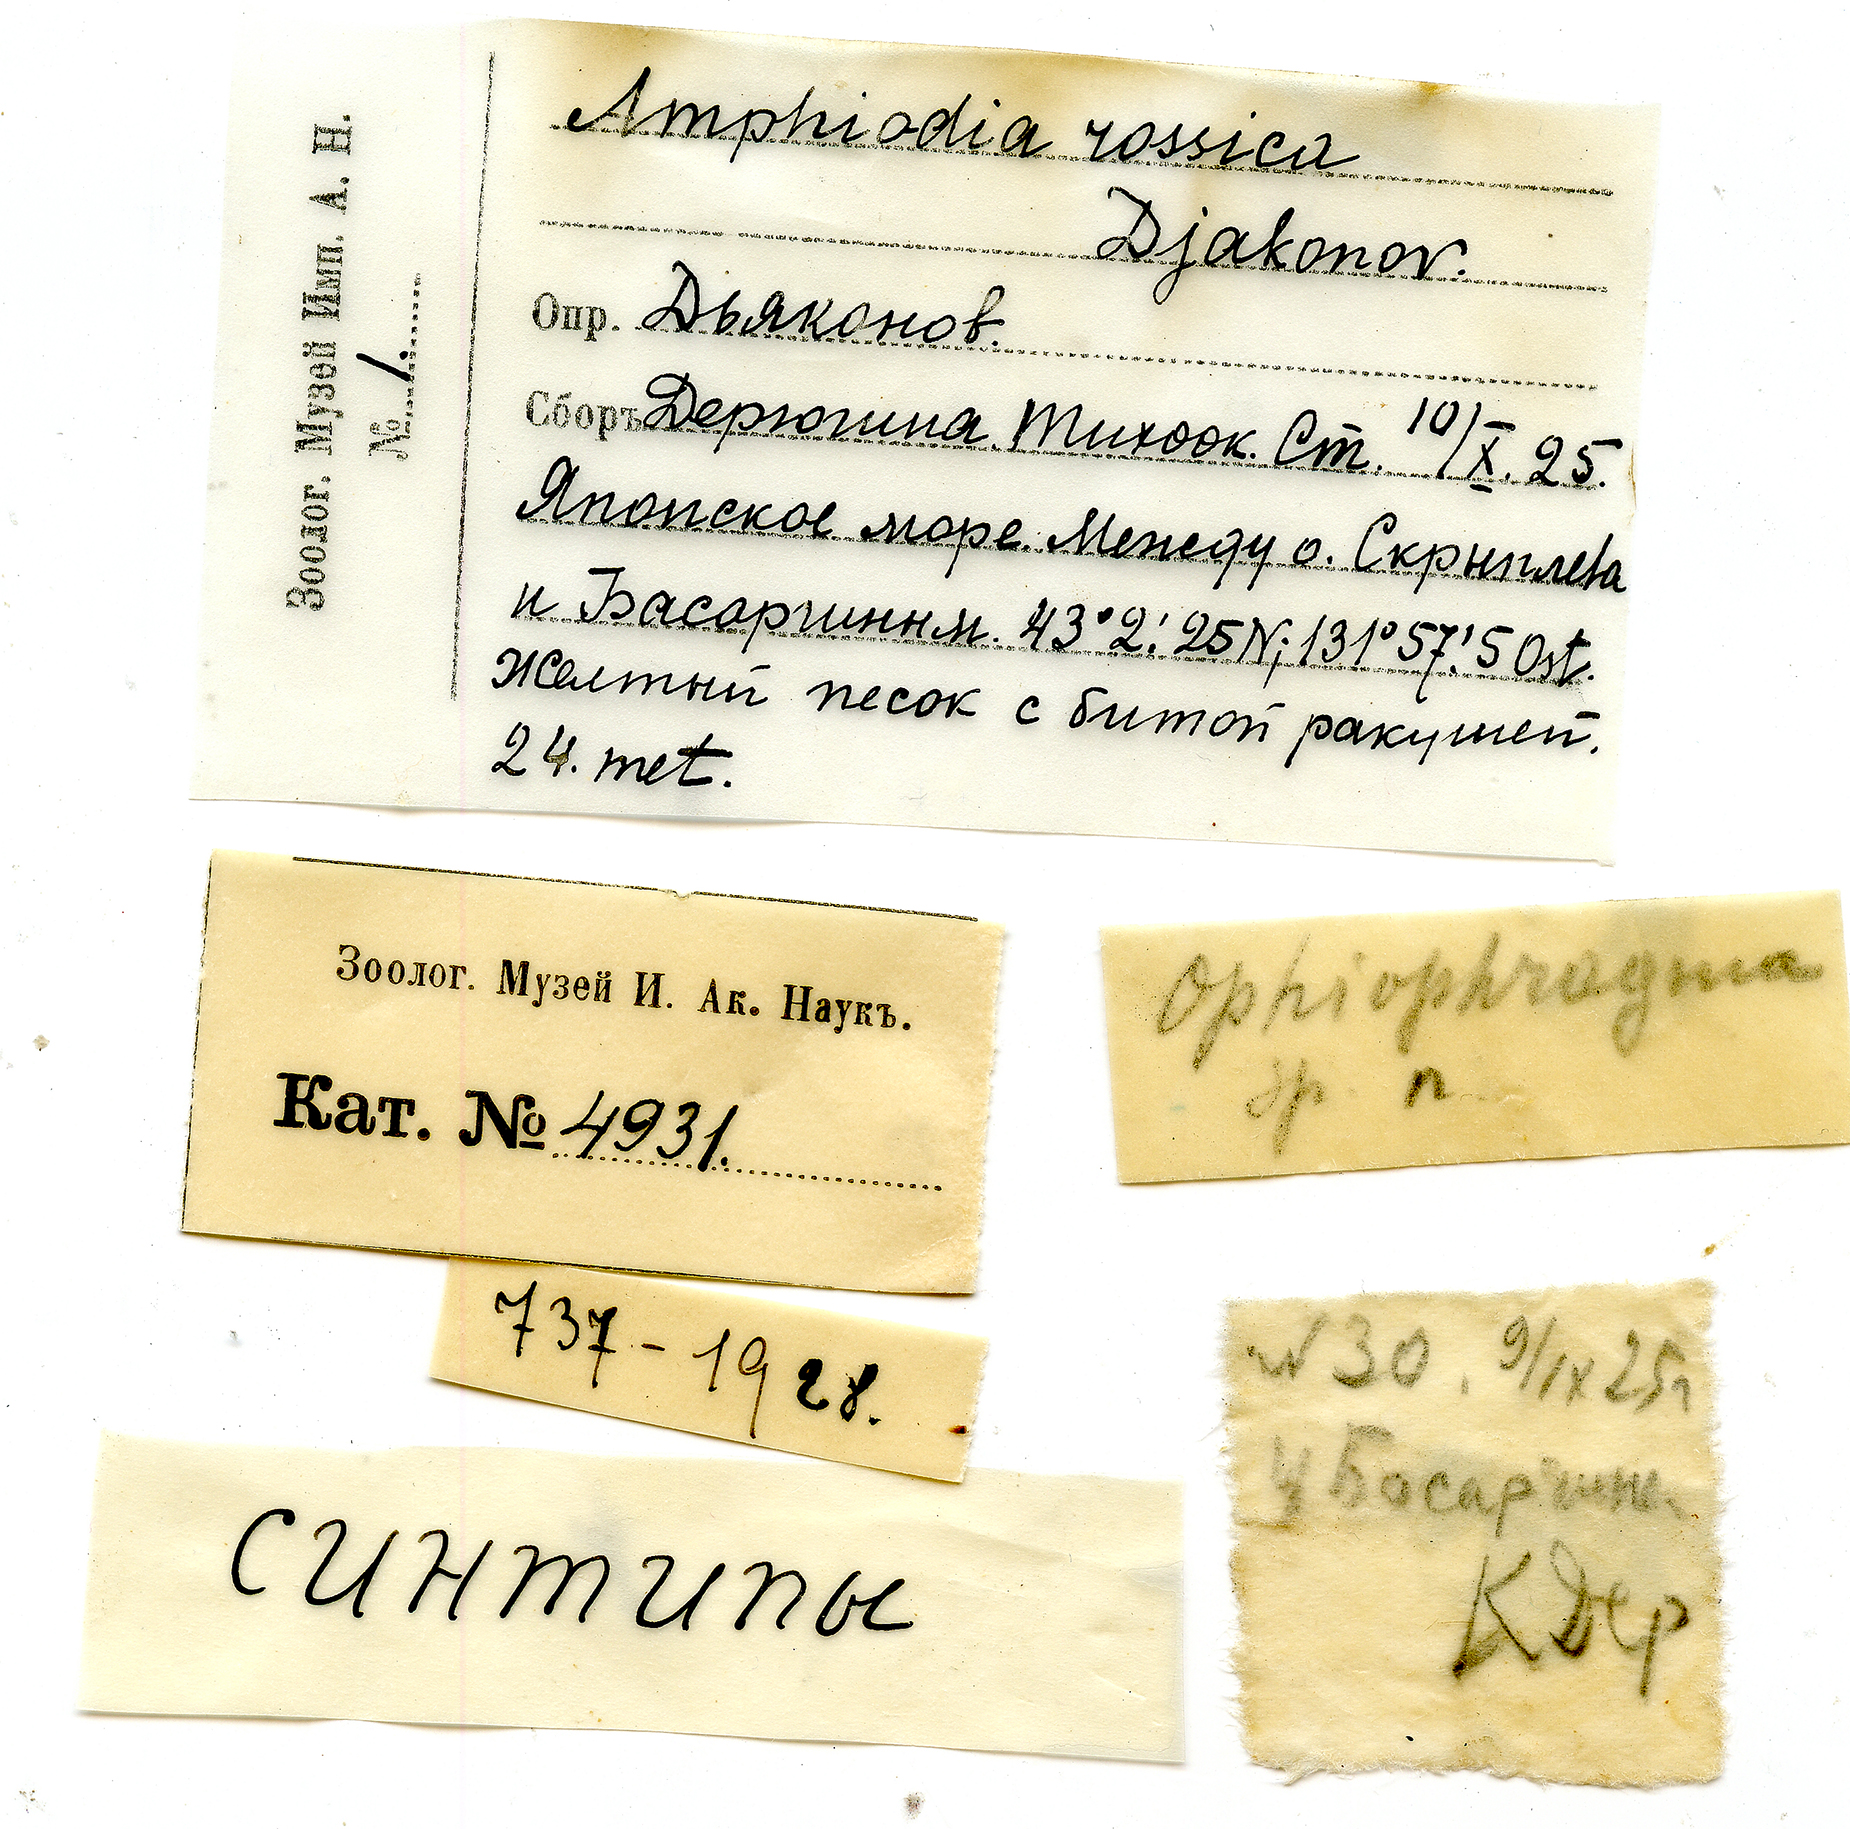 Зоолог. Музей Имп. А. Н.
№ 1.
Amphiodia rossica
Djakonov.
Опр. Дьяконов.
Сборъ Дерюгина. Тихоок. Ст. 10/X. 25.
Японское море. Между о. Скрыплева
и Басаргиным. 43°2'.25 N; 131°57'.5 Ost.
Желтый песок с битой ракушей.
24. met.
Зоолог. Музей И. Ак. Наукъ.
Кат. № 4931.
737 - 1928.
синтипы
Ophiophragma
sp. n.
N 30. 9/IX 25г
у Босаргин.
КДер